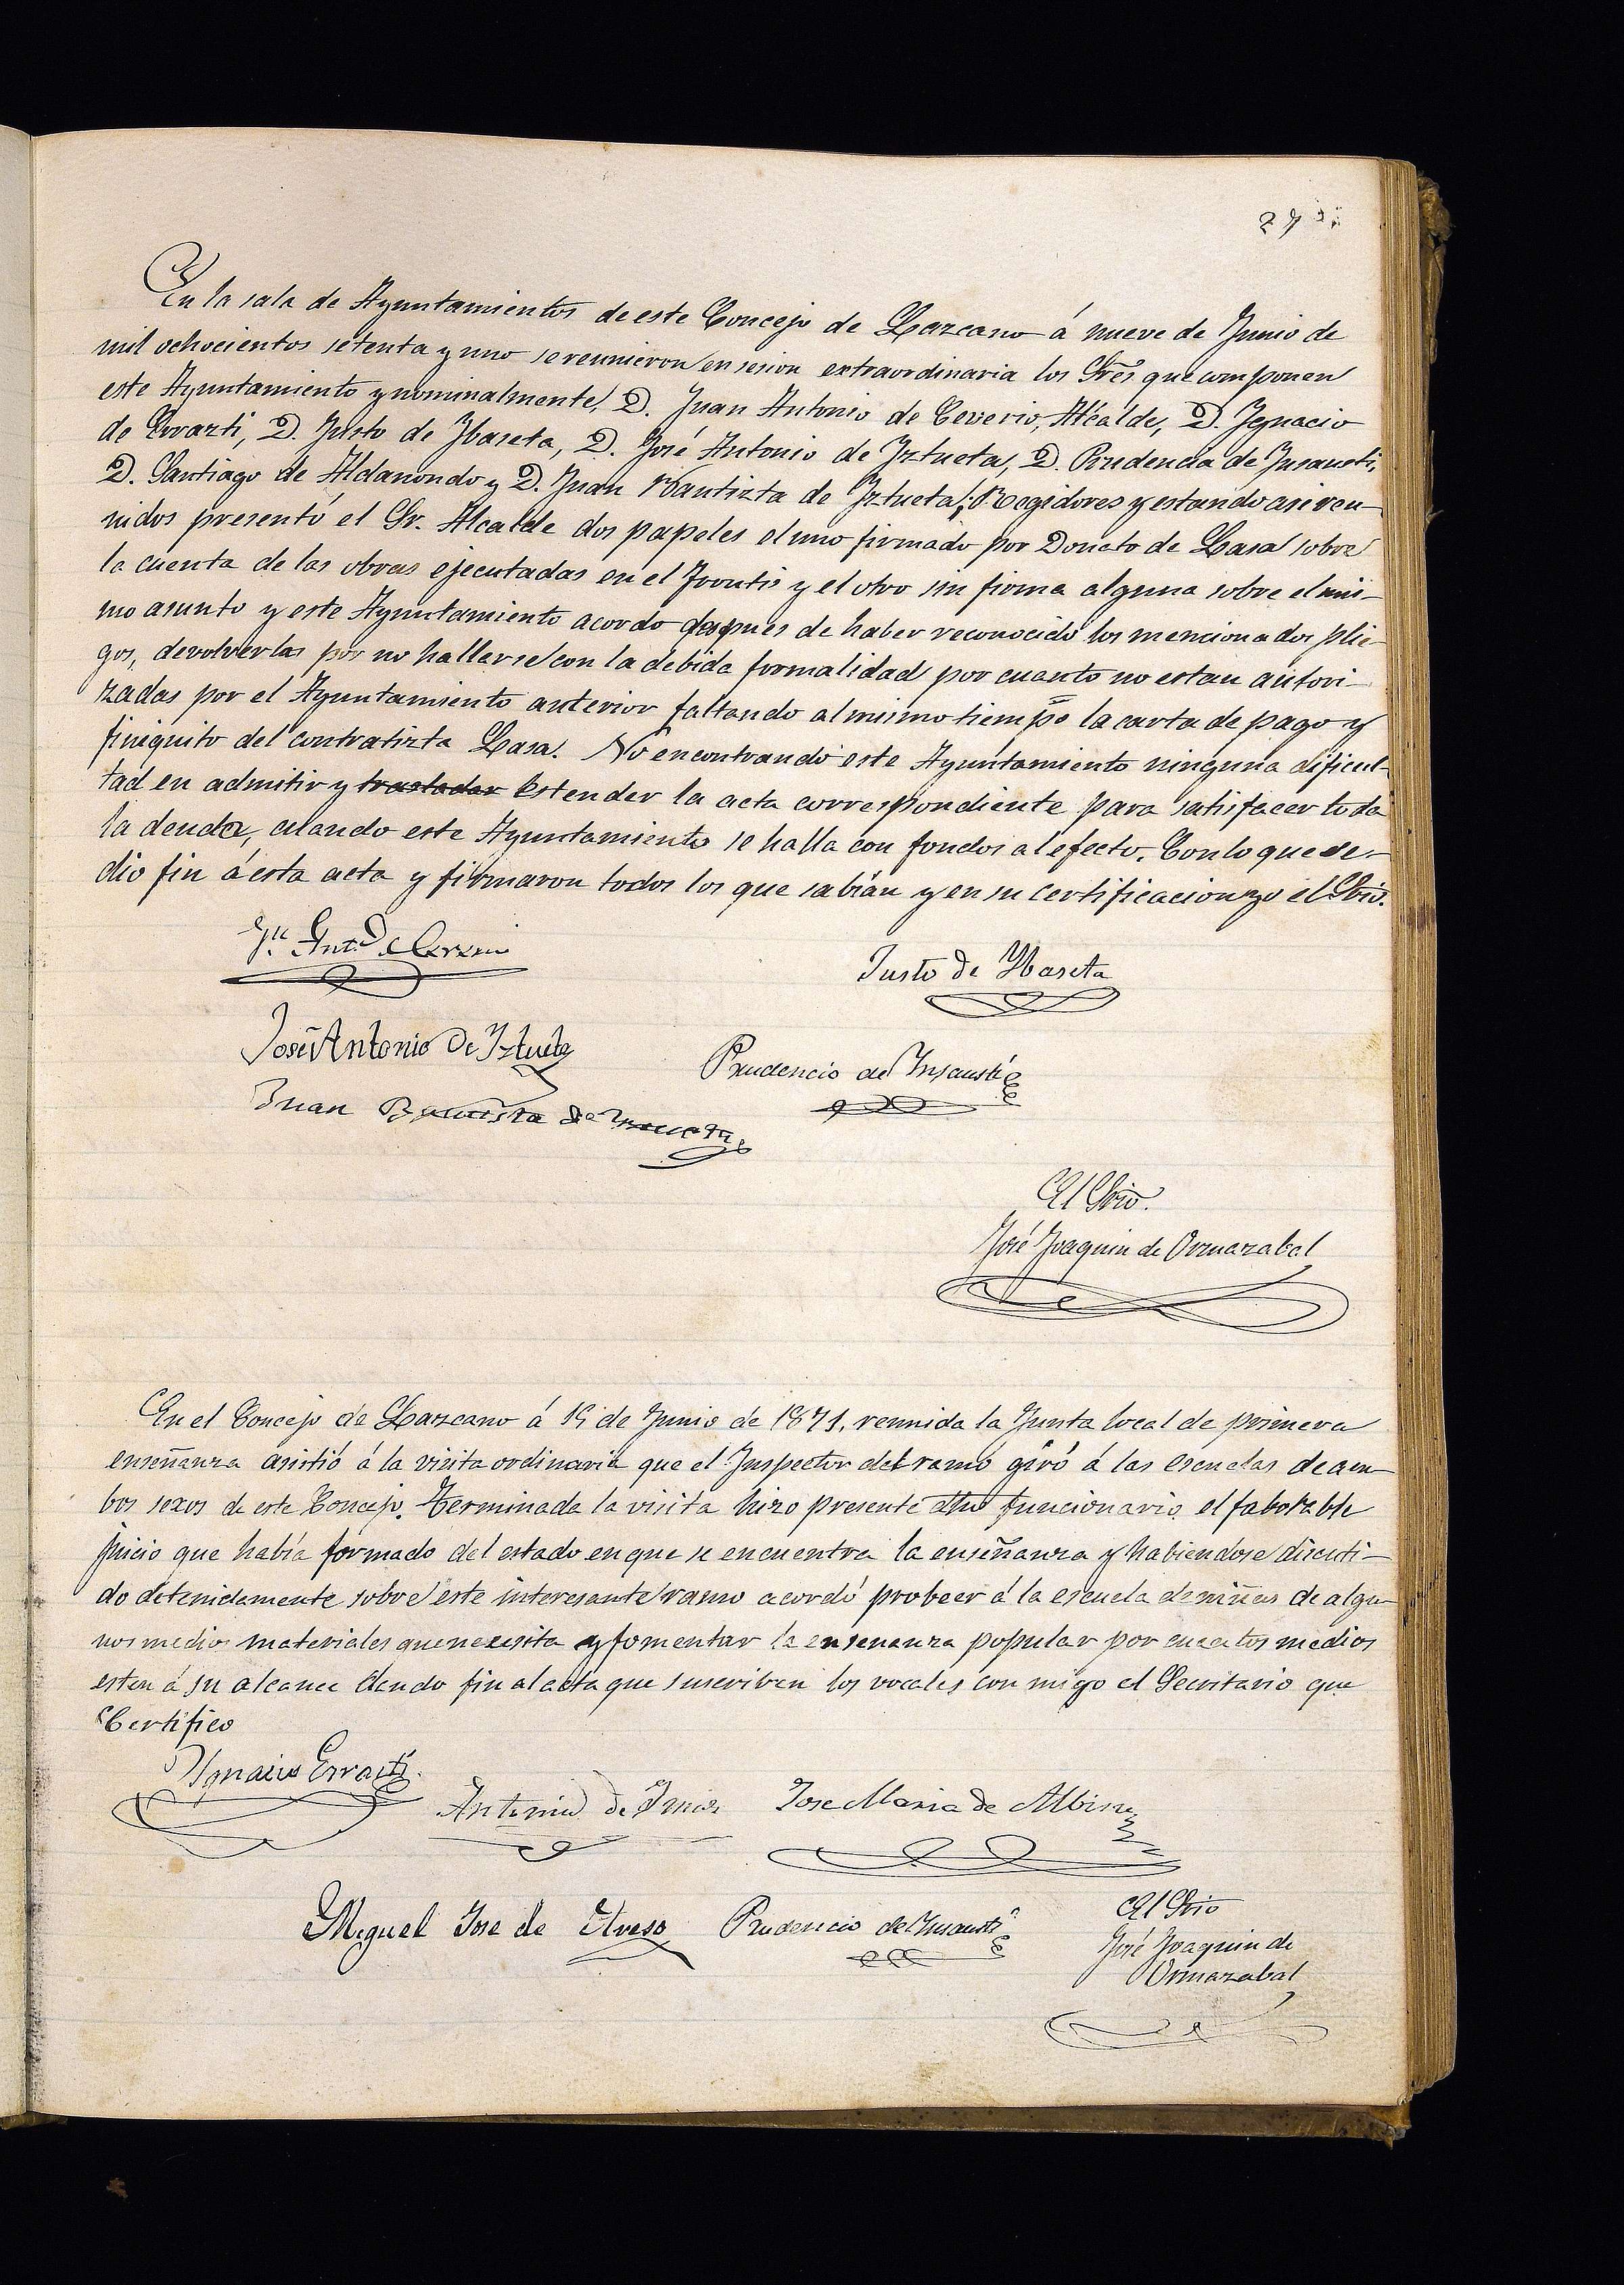 27
En la sala de Ayuntamientos de este Concejo de Lazcano á nueve de Junio de
mil ochocientos setenta y uno se reunieron en sesion extraordinaria los Sres que componen
este Ayuntamiento y nominalmente, D. Juan Antonio de Ceverio, Alcalde, D. Ygnacio
de Errazti, D. Justo de Ybaseta, D. José Antonio de Yztueta, D. Prudencia de Insausti,
D. Santiago de Aldanondo y D. Juan Bautizta de Yztueta, Regidores y estando asi reu-
nidos presentó el Sr. Alcalde dos papeles el uno firmado por Donato de Lasa sobre
la cuenta de las obras ejecutadas en el Frontis y el otro sin firma alguna sobre el mis-
mo asunto y este Ayuntamiento acordo despues de haber reconocido los mencionados plie-
gos, devolverlas por no hallarse con la debida formalidad por cuanto no estan autori-
zadas por el Ayuntamiento anterior faltando al mismo tiempo la carta de pago y
finiquito del contratizta Lasa. No encontrando este Ayuntamiento ninguna dificul-
tad en admitir y trasladar Estender la acta correspondiente para satisfacer toda
la deuda, cuando este Ayuntamiento se halla con fondos al efecto. Con lo que se-
dio fin á esta acta y firmaron todos los que sabian y en su certificacion yo el Strio.
Jn. Ant. de Ceverio
Justo de Ybaseta
José Antonio de Yztueta
Prudencio de Insausti
Juan Bautista de
El Strio.
José Joaquin de Ormazabal
En el Concejo de Lazcano á 15 de Junio de 1871, reunida la Junta local de primera
enseñanza asistió á la visita ordinaria que el Inspector del ramo giró á las escuelas de am-
bos sexos de este Concejo. Terminada la visita hizo presente dho funcionario el faborable
juicio que había formado del estado en que se encuentra la enseñanza y habiendose discuti-
do detenidamente sobre este interesante ramo acordó probeer á la escuela de niñas de algu-
nos medios materiales que necesita y fomentar la ensenanza popular por cuantos medios
esten á su alcance dando fin al acta que suscriben los vocales con migo el Secretario que
Certifico
Ygnacio Errazti
Antonio de
Jose Maria de Albisu
Miguel Jose de
Prudencio de Insausti
El Strio
José Joaquin de
Ormazabal